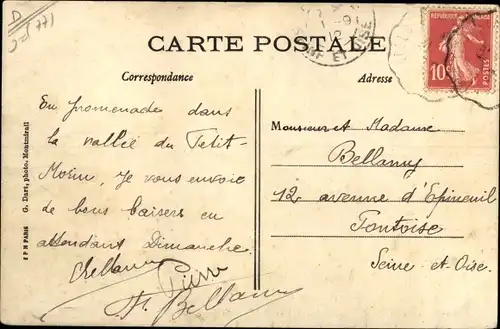 D
CARTE POSTALE
RÉPUBLIQUE FRANÇAISE
10c
Correspondance
Adresse
En promenade dans
la vallée du Petit-
Morin, je vous envoie
de bons baisers en
attendant Dimanche
Pierre
Bellamy
Monsieur et Madame
Bellamy
12 avenue d'Epineuil
Pontoise
Seine et Oise.
G. Dart, photo. Montmirail
PARIS